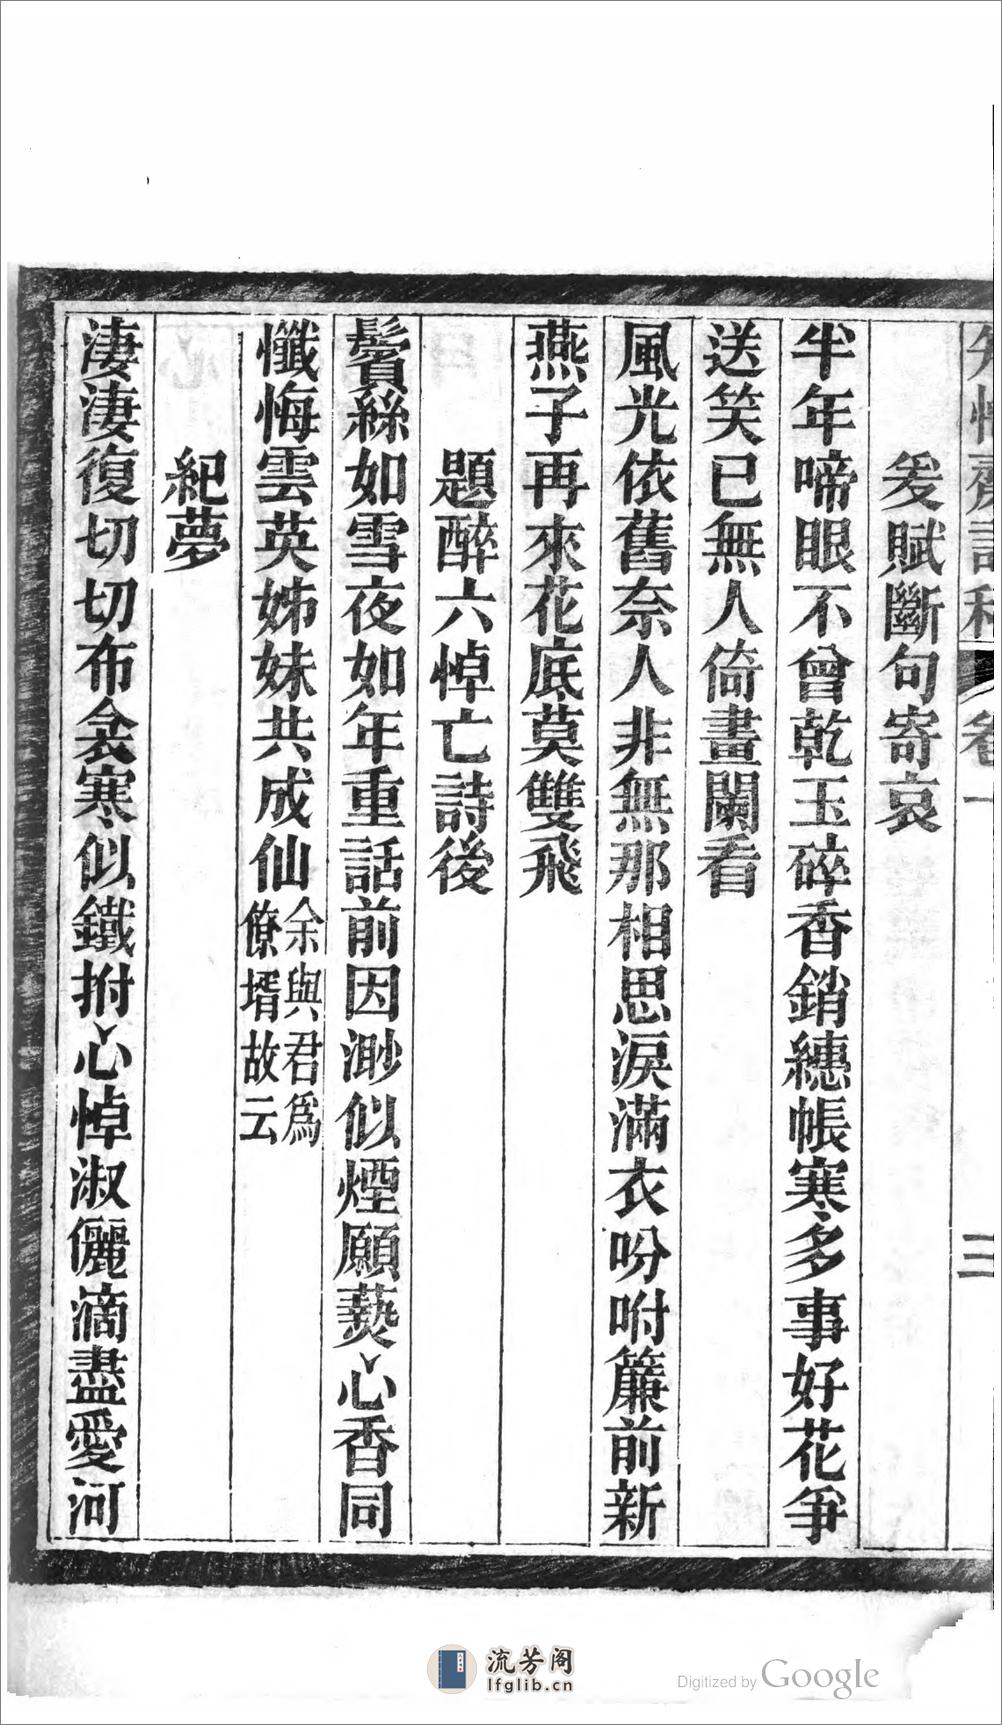 爰賦斷句寄哀
半年啼眼不曾乾玉碎香銷繐帳寒多事好花爭
送笑已無人倚畫闌看
風光依舊奈人非無那相思淚滿衣吩咐簾前新
燕子再來花底莫雙飛
題醉六悼亡詩後
鬢絲如雪夜如年重話前因渺似煙願爇心香同
懺悔雲英姊妹共成仙余與君爲
僚壻故云
紀夢
淒淒復切切布衾寒似鐵拊心悼淑儷滴盡愛河
卷一
三
流芳阁
lfglib.cn
Digitized by Google